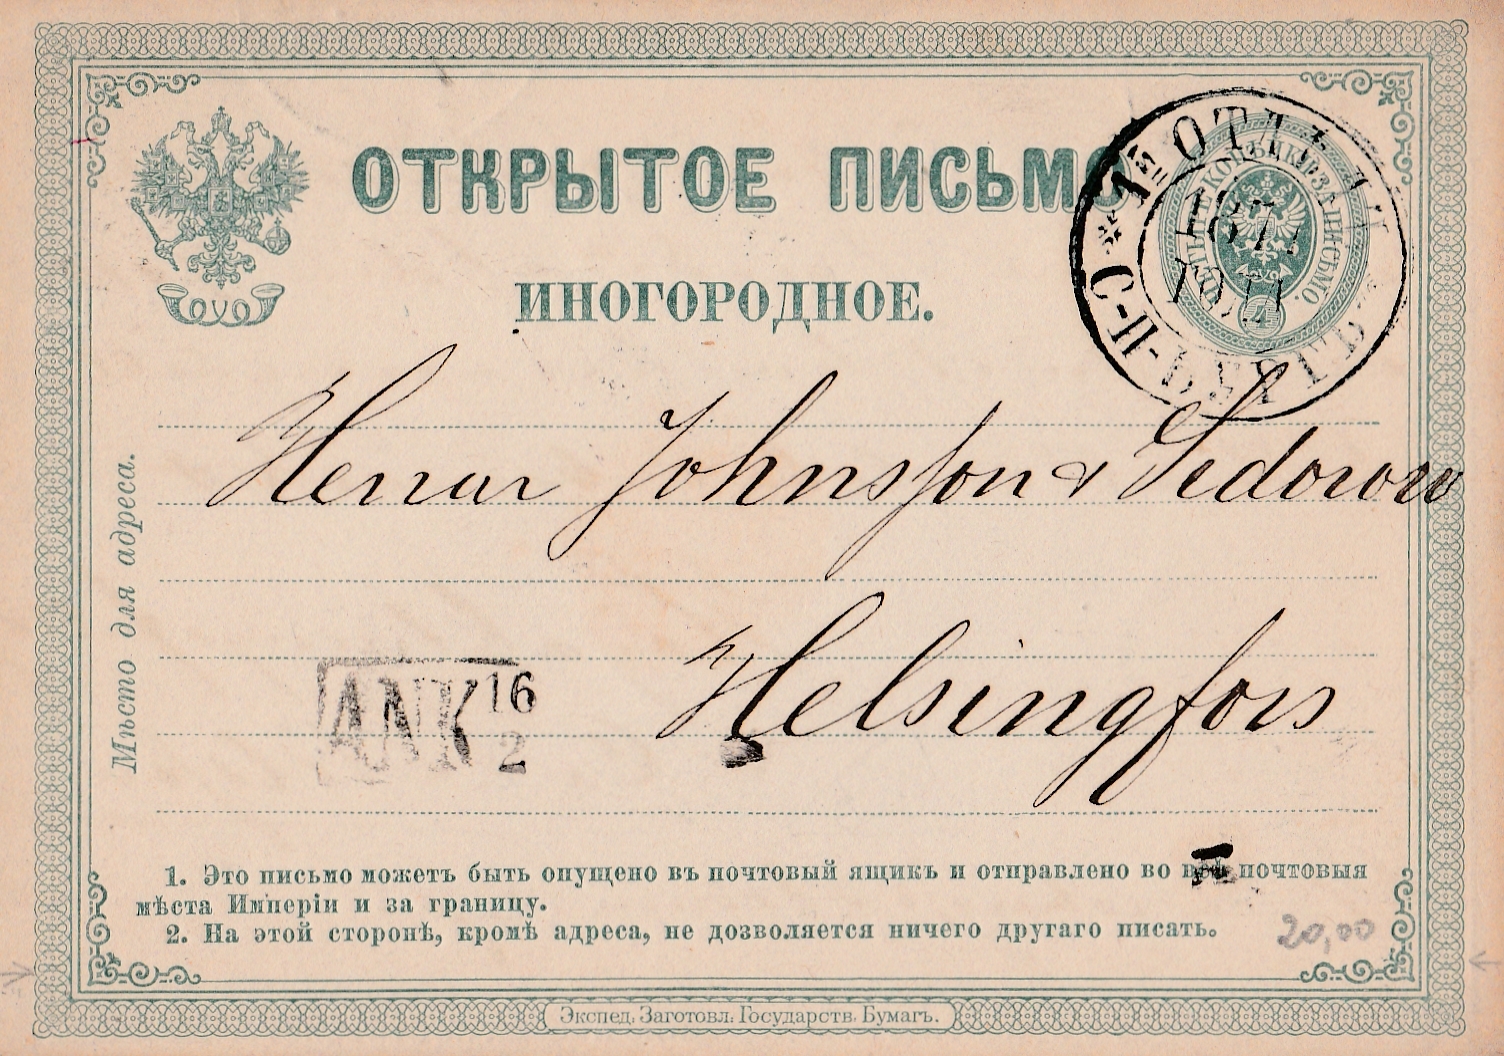 ОТКРЫТОЕ ПИСЬМО
ИНОГОРОДНОЕ.
1й ОТД
С-П-
187
4
Herrar Johnsson & Fedorow
Helsingfors
Мѣсто для адреса.
ANK 16
2
1. Это письмо можетъ быть опущено въ почтовый ящикъ и отправлено во всѣ почтовыя
мѣста Имперіи и за границу.
2. На этой сторонѣ, кромѣ адреса, не дозволяется ничего другаго писать.
20,00
Экспед. Заготовл. Государств. Бумагъ.